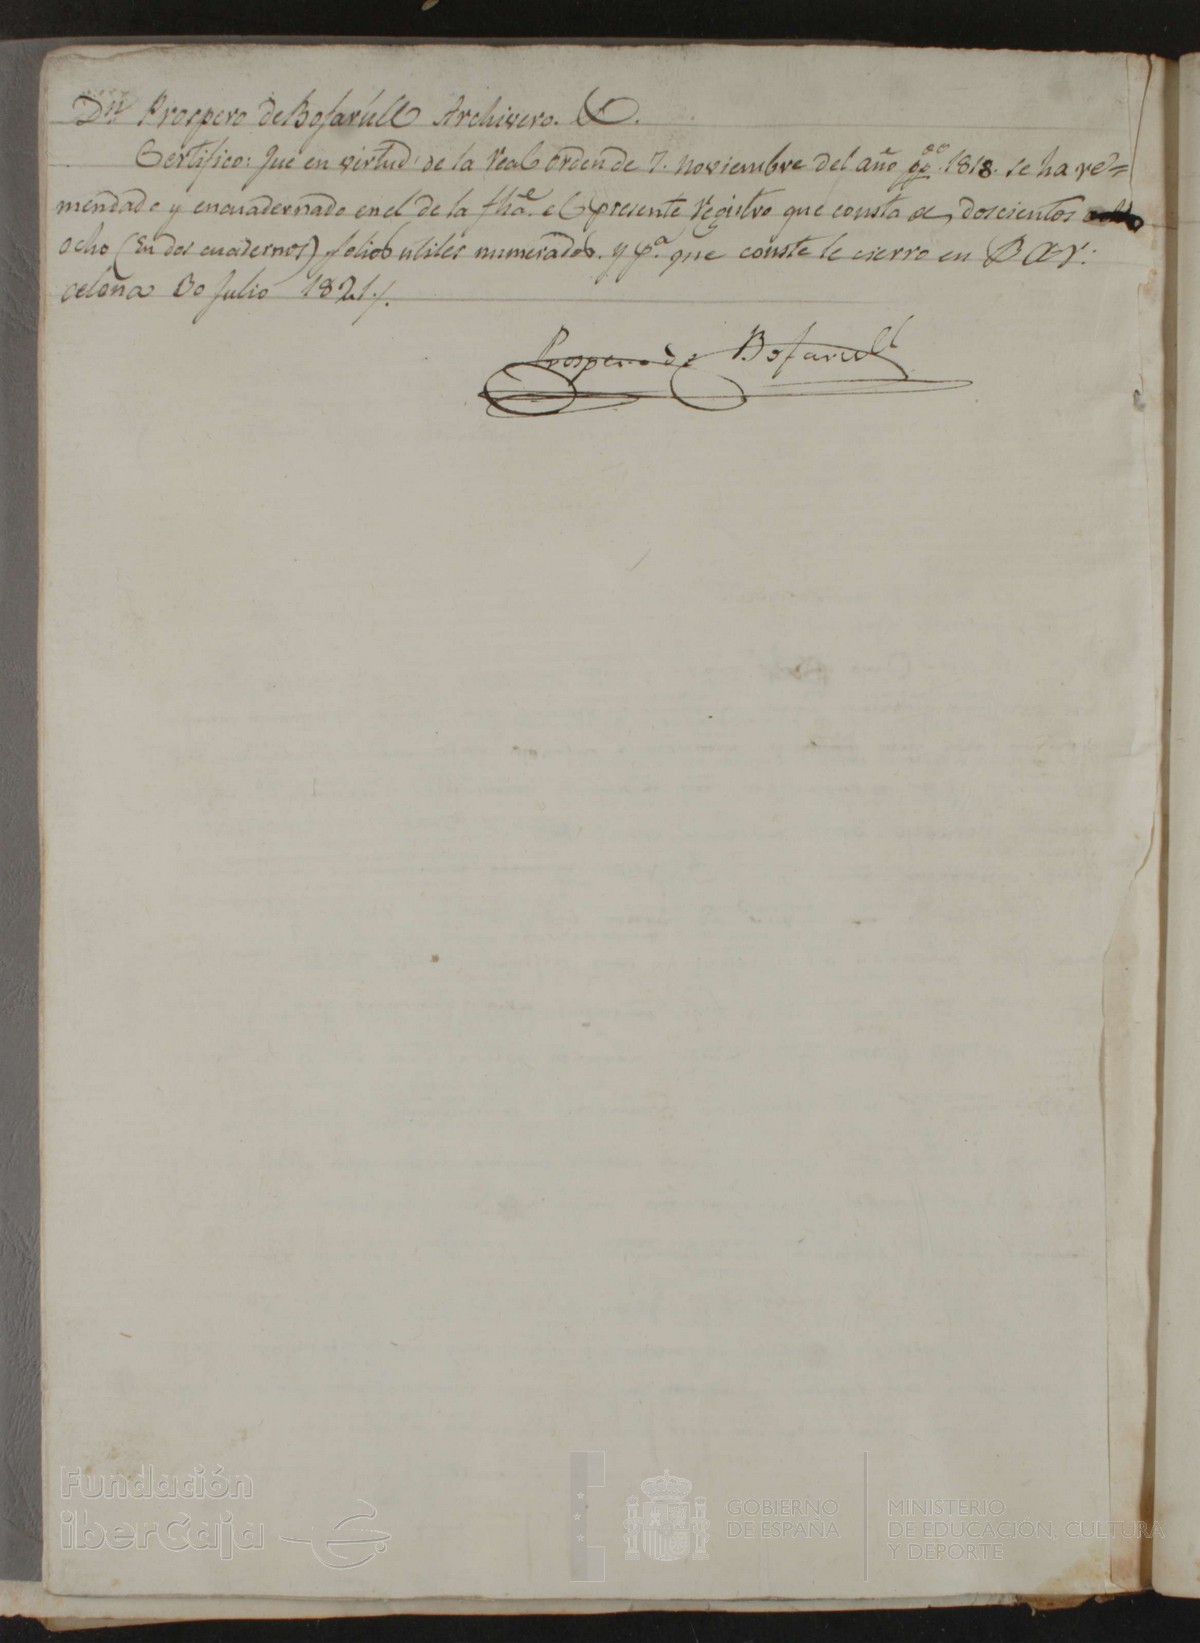 Dn. Prospero de Bofarull Archivero. &.
Certifico: Que en virtud de la Real orden de 7. Noviembre del año pp.do 1818. se ha re=
mendado y encuadernado en el de la fha. el presente registro que consta de doscientos
ocho (En dos cuadernos) folios utiles numerados. y p.a que conste le cierro en Bar:
celona 30 Julio 1821./.
Prospero de Bofarull
Fundación
iberCaja
GOBIERNO
DE ESPAÑA
MINISTERIO
DE EDUCACIÓN, CULTURA
Y DEPORTE